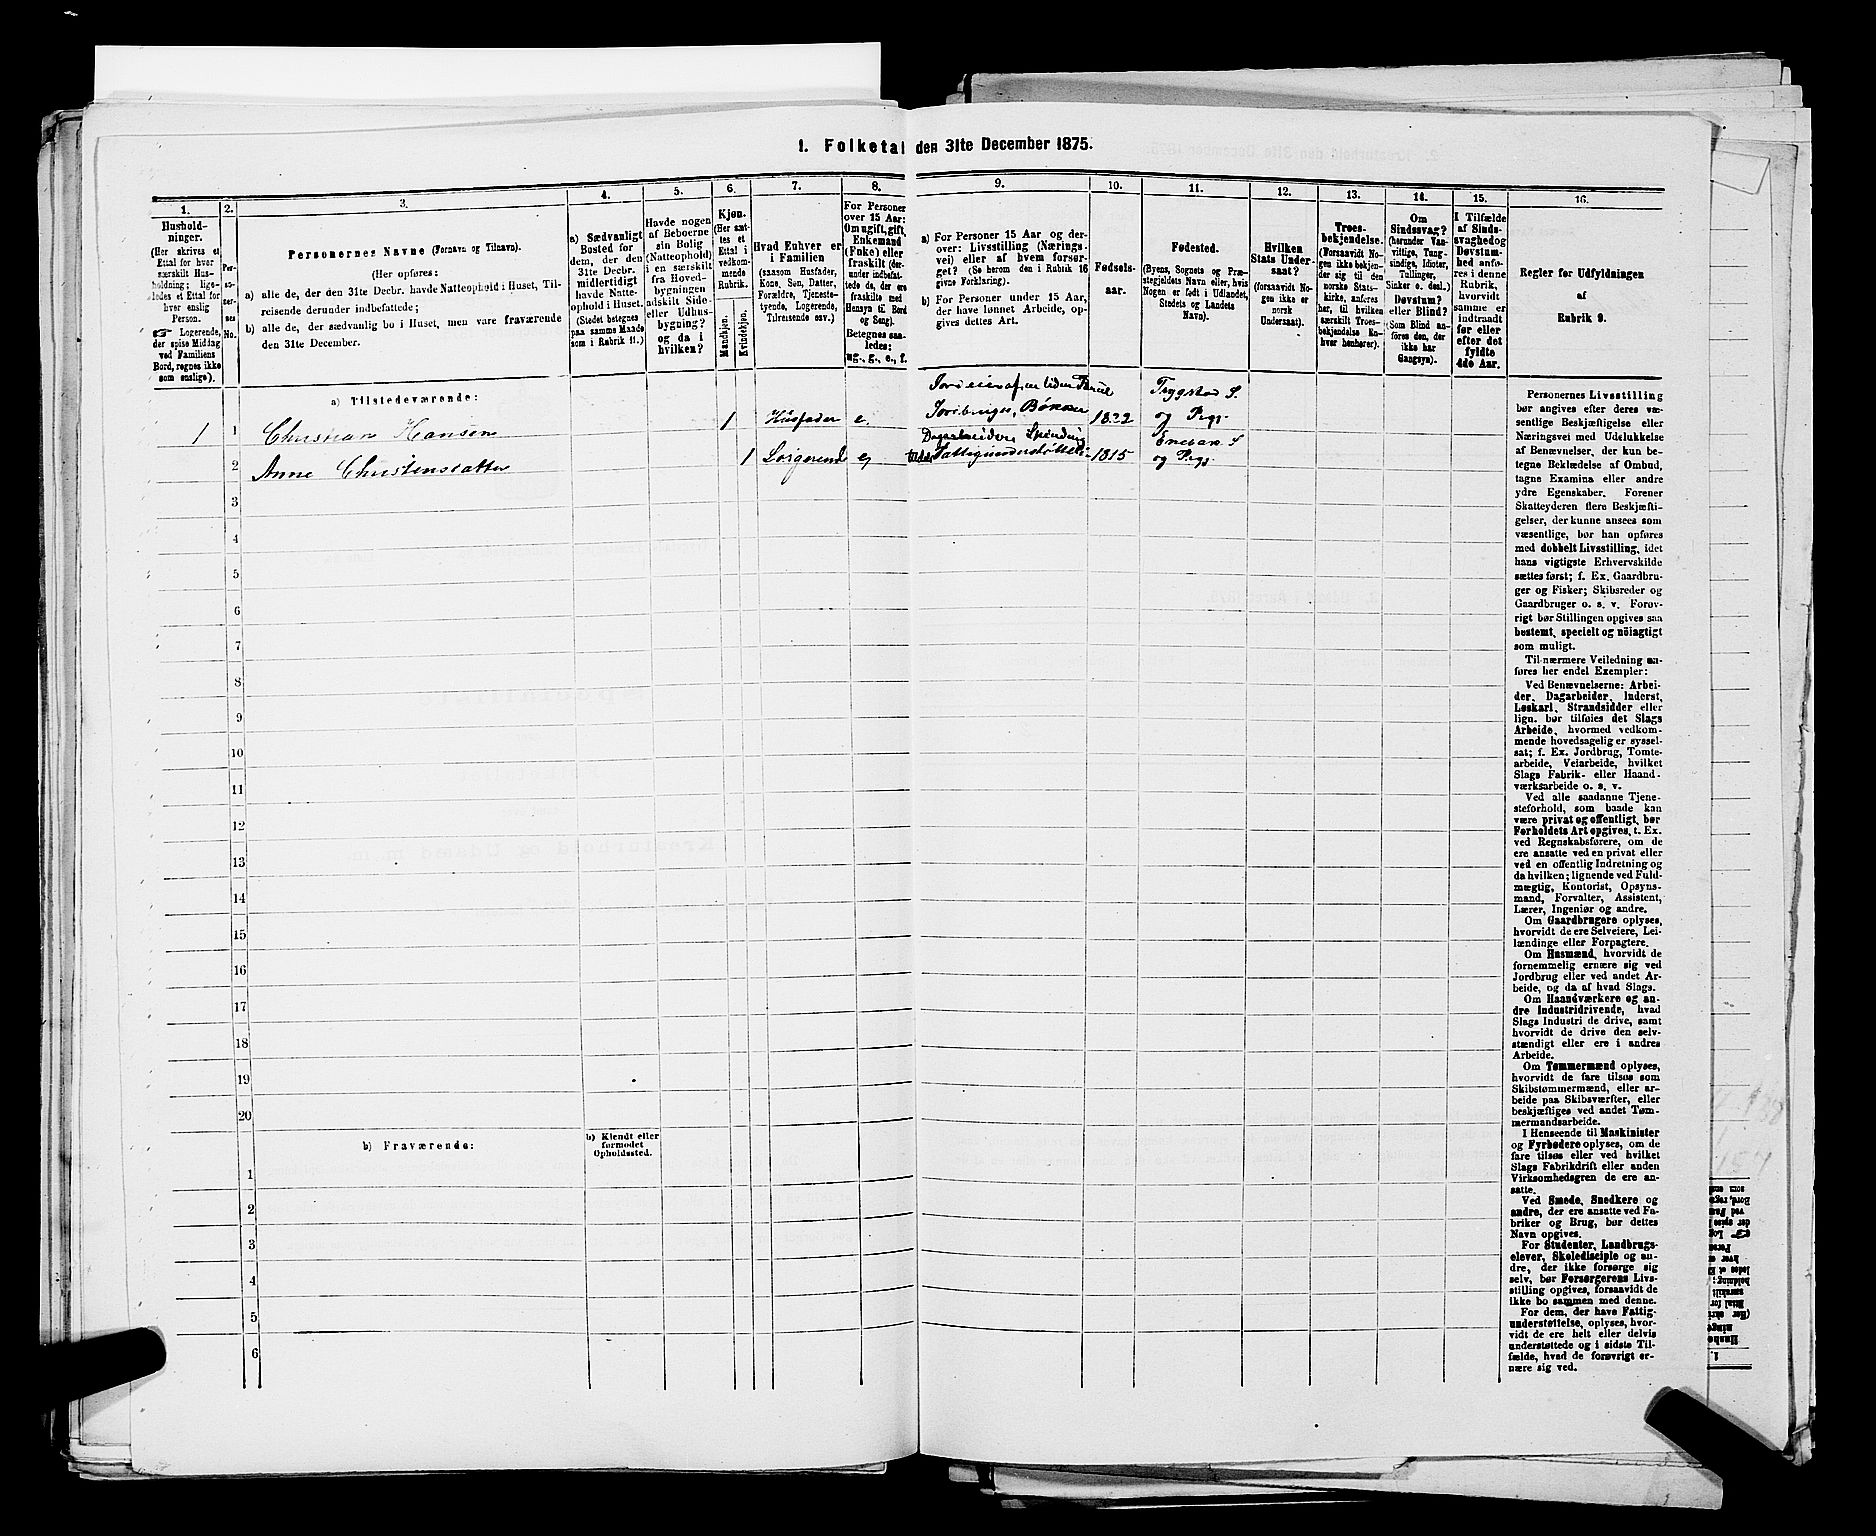 1. Folketal den 31te December 1875.
1.
Hushold-
ninger.
(Her skrives et
Ettal for hver
særskilt Hus-
holdning; lige-
ledes et Ettal for
hver enslig
Person.
☞ Logerende,
der spise Middag
ved Familiens
Bord, regnes ikke
som enslige).
2.
Per-
so-
ner-
nes
No.
3.
Personernes Navne (Fornavn og Tilnavn).
(Her opføres:
a) alle de, der den 31te Decbr. havde Natteophold i Huset, Til-
reisende derunder indbefattede;
b) alle de, der sædvanlig bo i Huset, men vare fraværende
den 31te December.
4.
a) Sædvanligt
Bosted for
dem, der den
31te Decbr.
midlertidigt
havde Natte-
ophold i Huset.
(Stedet betegnes
paa samme Maade
som i Rubrik 11.)
5.
Havde nogen
af Beboerne
sin Bolig
(Natteophold)
i en særskilt
fra Hoved-
bygningen
adskilt Side-
eller Udhus-
bygning?
og da i
hvilken?
6.
Kjøn.
(Her sæt-
tes et
Ettal i
vedkom-
mende
Rubrik.
Mandkjøn.
Kvindekjøn.
7.
Hvad Enhver er
i Familien
(saasom Husfader,
Kone, Søn, Datter,
Forældre, Tjeneste-
tyende, Logerende,
Tilreisende osv.)
8.
For Personer
over 15 Aar:
Om ugift, gift,
Enkemand
(Enke) eller
fraskilt (der-
under indbefat-
tede de, der ere
fraskilte med
Hensyn til Bord
og Seng).
Betegnes saa-
ledes:
ug., g., e., f.
9.
a) For Personer 15 Aar og der-
over: Livsstilling (Nærings-
vei) eller af hvem forsør-
get? (Se herom den i Rubrik 16
givne Forklaring).
b) For Personer under 15 Aar,
der have lønnet Arbeide, op-
gives dettes Art.
10.
Fødsels-
aar.
11.
Fødested.
(Byens, Sognets og Præ-
stegjeldets Navn eller, hvis
Nogen er født i Udlandet,
Stedets og Landets
Navn).
12.
Hvilken
Stats Under-
saat?
(forsaavidt No-
gen ikke er
norsk
Undersaat).
13.
Troes-
bekjendelse.
(Forsaavidt No-
gen ikke bekjen-
der sig til den
norske Stats-
kirke, anføres
her, til hvilken
særskilt Troes-
bekjendelse En-
hver henhører).
14.
Om
Sindssvag?
(herunder Van-
vittige, Tung-
sindige, Idioter,
Tullinger,
Sinker o. desl.)
Døvstum?
eller Blind?
(Som Blind an-
føres den, der
ikke har
Gangsyn).
15.
I Tilfælde
af Sinds-
svaghed og
Døvstum-
hed anfø-
res i denne
Rubrik,
hvorvidt
samme er
indtraadt
før eller
efter det
fyldte
4de Aar.
16.
Regler før Udfyldningen
af
Rubrik 9.
a) Tilstedeværende:
1 1 Christian Hansen 1 Husfader e. Jordeier af en liden 1822 Trygstad S.
og Prgj.
2 Anne Christensdatter 1 Logerend e, Fattigunderstøttelse 1815 Enebak S
og Prgj.
3
4
5
6
7
8
9
10
11
12
13
14
15
16
17
18
19
20
b) Fraværende:
b) Kjendt eller
formodet
Opholdssted.
1
2
3
4
5
6
Personernes Livsstilling
bør angives efter deres væ-
sentlige Beskjæftigelse eller
Næringsvei med Udelukkelse
af Benævnelser, der kun be-
tegne Beklædelse af Ombud,
tagne Examina eller andre
ydre Egenskaber. Forener
Skatteyderen flere Beskjæfti-
gelser, der kunne ansees som
væsentlige, bør han opføres
med dobbelt Livsstilling, idet
hans vigtigste Erhvervskilde
sættes først; f. Ex. Gaardbru-
ger og Fisker; Skibsreder og
Gaardbruger o. s. v. Forøv-
rigt bør Stillingen opgives saa
bestemt, specielt og nöiagtigt
som muligt.
Til nærmere Veiledning an-
føres her endel Exempler:
Ved Benævnelserne: Arbei-
der, Dagarbeider, Inderst,
Løskarl, Strandsidder eller
lign. bør tilføies det Slags
Arbeide, hvormed vedkom-
mende hovedsagelig er syssel-
sat; f. Ex. Jordbrug, Tomte-
arbeide, Veiarbeide, hvilket
Slags Fabrik- eller Haand-
værksarbeide o. s. v.
Ved alle saadanne Tjene-
steforhold, som baade kan
være privat og offentligt, bør
Forholdets Art opgives, t. Ex.
ved Regnskabsførere, om de
ere ansatte ved en privat eller
ved en offentlig Indretning og
da hvilken; lignende ved Fuld-
mægtig, Kontorist, Opsyns-
mand, Forvalter, Assistent,
Lærer, Ingeniør og andre.
Om Gaardbrugere oplyses,
hvorvidt de ere Selveiere, Lei-
lændinge eller Forpagtere.
Om Husmænd, hvorvidt de
fornemmelig ernære sig ved
Jordbrug eller ved andet Ar-
beide, og da af hvad Slags.
Om Haandværkere og an-
dre Industridrivende, hvad
Slags Industri de drive, samt
hvorvidt de drive den selv-
stændigt eller ere i andres
Arbeide.
Om Tømmermænd oplyses,
hvorvidt de fare tilsøs som
Skibstømmermænd, eller ar-
beide paa Skibsværfter, eller
beskjæftiges ved andet Tøm-
mermandsarbeide.
I Henseende til Maskinister
og Fyrbødere oplyses, om de
fare tilsøs eller ved hvilket
Slags Fabrikdrift eller anden
Virksomhedsgren de ere an-
satte.
Ved Smede, Snedkere og
andre, der ere ansatte ved Fa-
briker og Brug, bør dettes
Navn opgives.
For Studenter, Landbrugs-
elever, Skoledisciple og an-
dre, der ikke forsørge sig
selv, bør Forsørgerens Livs-
stilling opgives, forsaavidt de
ikke bo sammen med denne.
For dem, der have Fattig-
understøttelse, oplyses, hvor-
vidt de ere helt eller delvis
understøttede og i sidste Til-
fælde, hvad de forøvrigt er-
nære sig ved.